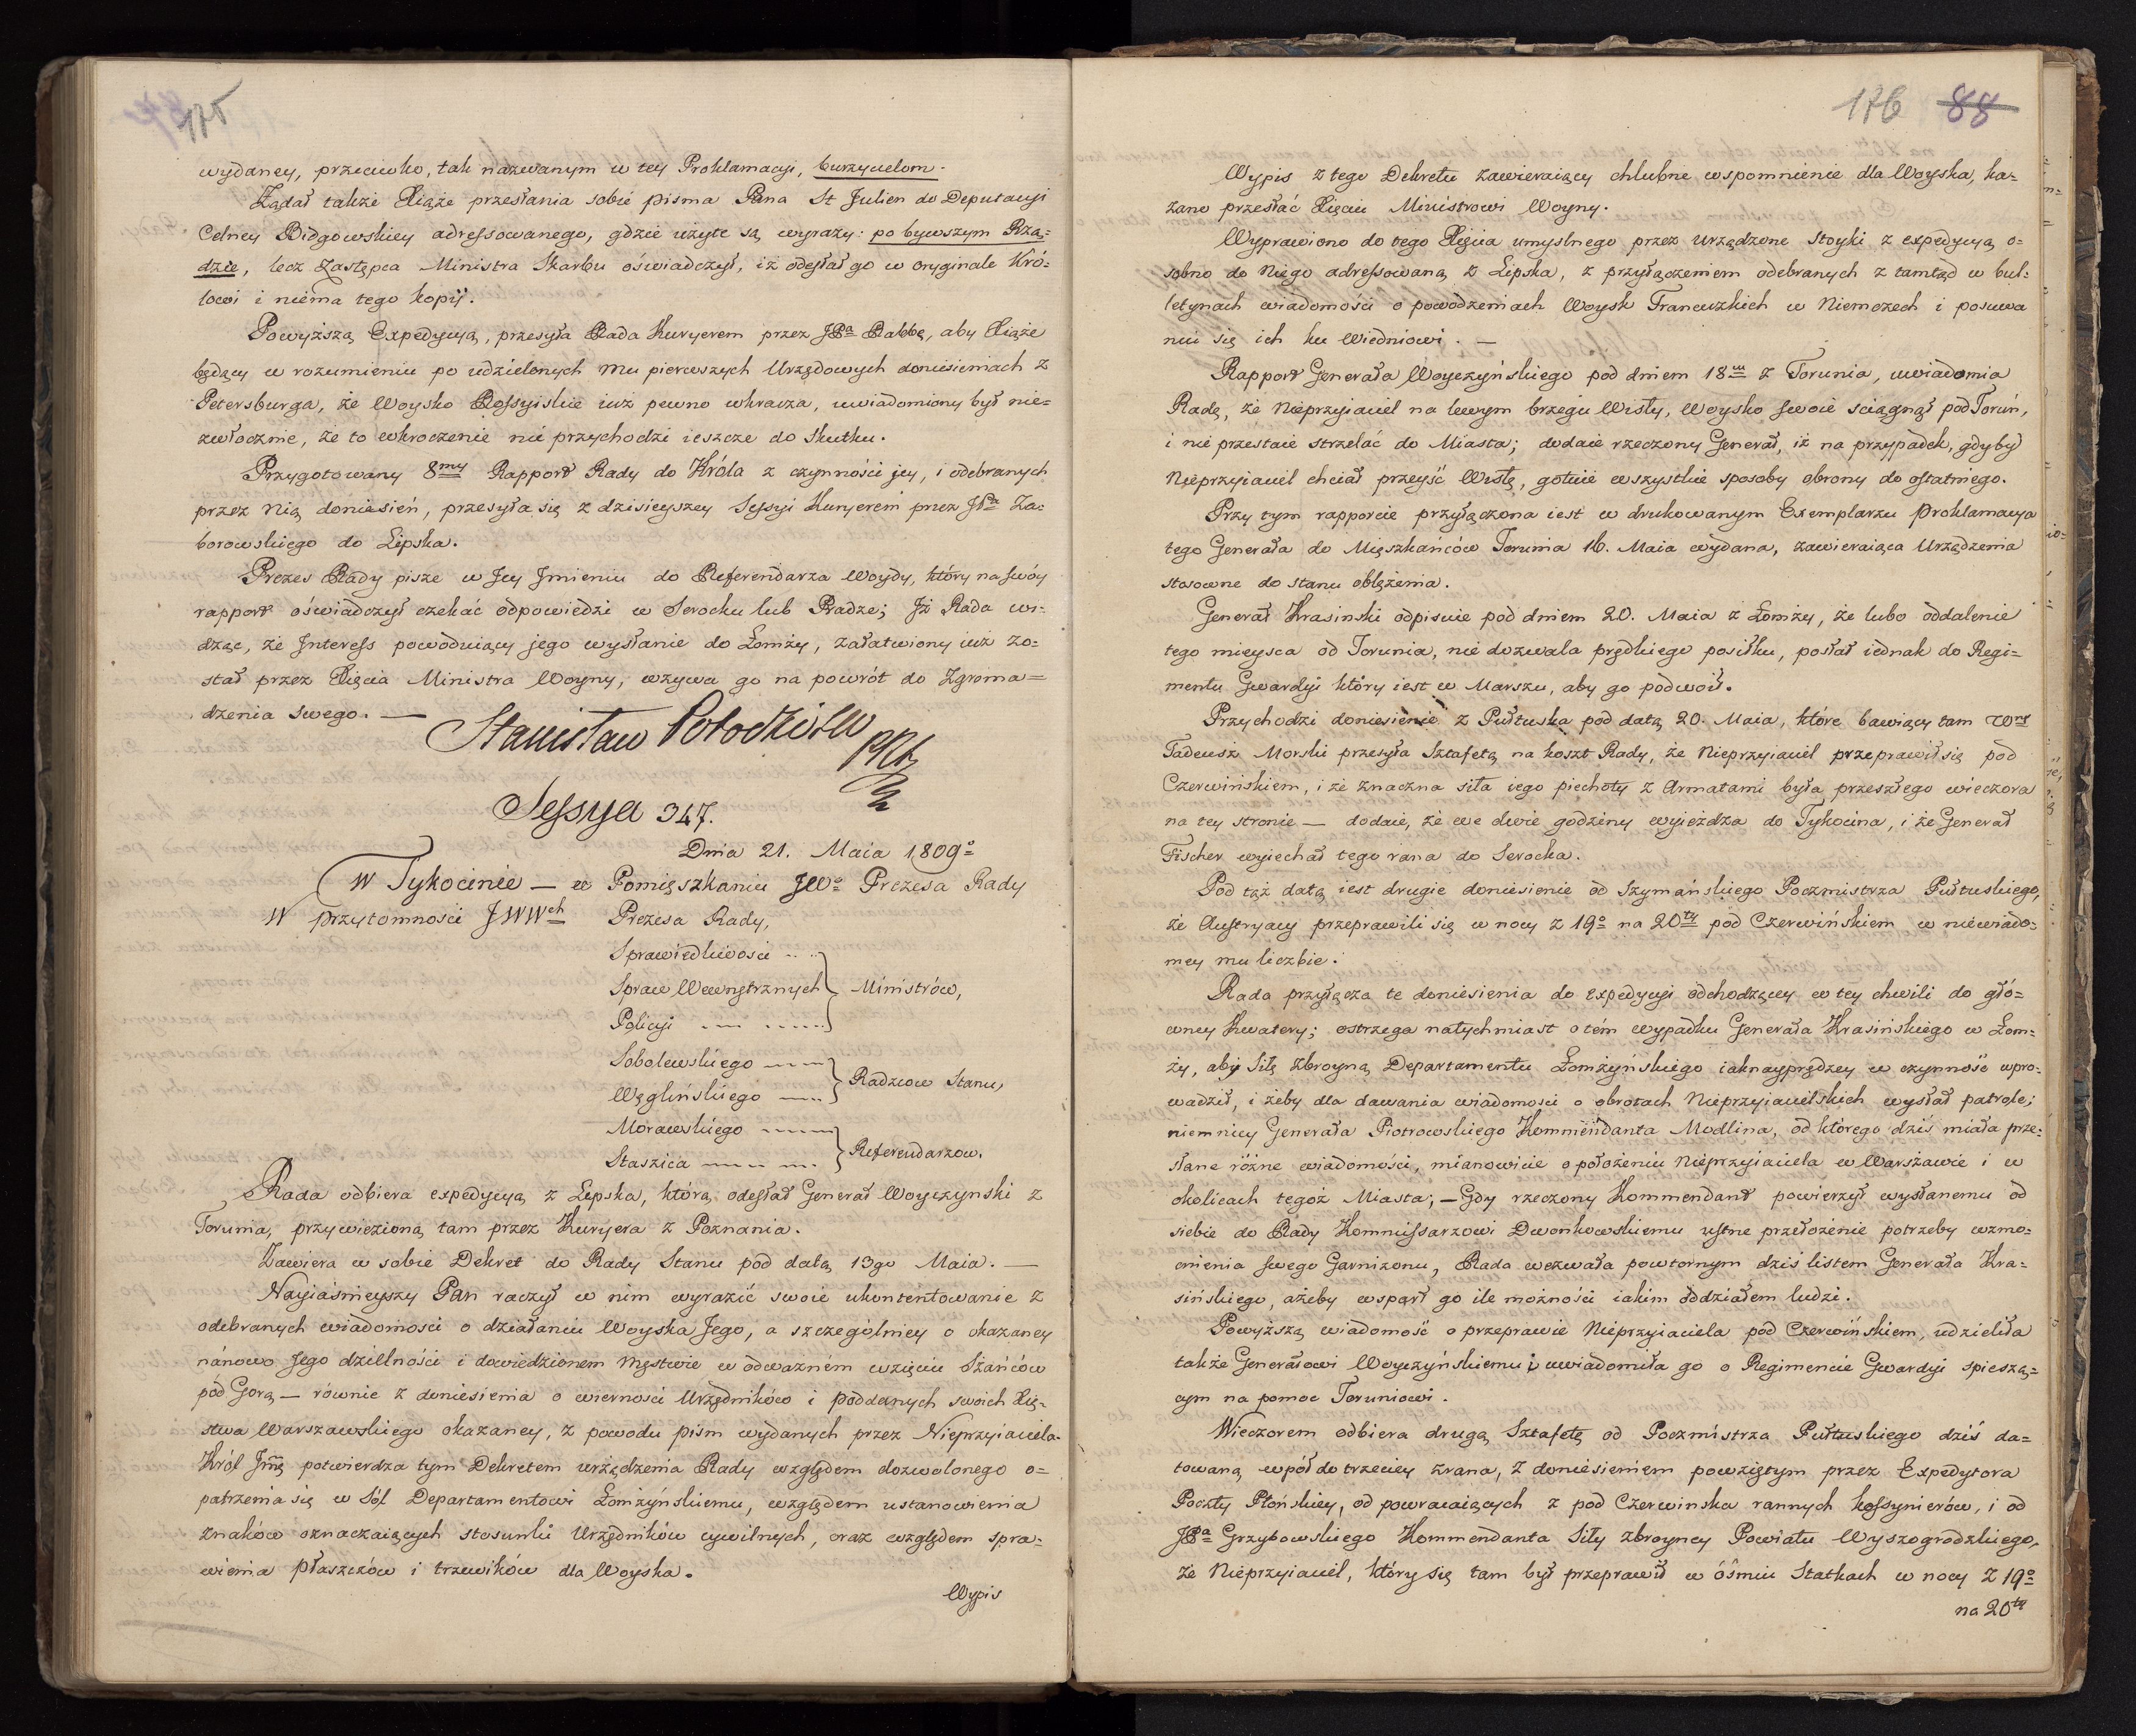 175
wydaney, przeciwko, tak nazwanym w tey Proklamacyi, burzycielom.
Żądał także Xiąże przesłania sobie pisma Pana St Julien do Deputacyi
Celney Bidgowskiey adressowanego, gdzie użyte są wyrazy: po bywszym Rzą=
dzie, lecz Zastępca Ministra Skarbu oświadczył, iż odesłał go w oryginale Kró=
lowi i niema tego kopij.
Powyższą Expedycyą, przesyła Rada Kuryerem przez JPa Rabbę, aby Xiąże
będący w rozumieniu po udzielonych mu pierwszych Urzędowych doniesieniach z
Petersburga, że Woysko Rossyiskie iuż pewno wkracza, uwiadomiony był nie=
zwłocznie, że to wkroczenie nie przychodzi ieszcze do skutku.
Przygotowany 8my Rapport Rady do Króla z czynności jey, i odebranych
przez Nią doniesień, przesyła się z dzisieyszey Sessyi Kuryerem przez JPa Za=
borowskiego do Lipska.
Prezes Rady pisze w Jey Jmieniu do Referendarza Woydy, który na swóy
rapport oświadczył czekać odpowiedzi w Serocku lub Pradze; Jż Rada wi=
dząc, że Jnteress powoduiący jego wysłanie do Łomży, załatwiony iuż zo=
stał przez Xięcia Ministra Woyny, wzywa go na powrót do Zgroma=
dzenia swego. —
Stanisław Potocki
Sessya 347.
Dnia 21. Maia 1809o
W Tykocinie — w Pomięszkaniu JWo Prezesa Rady
W przytomności JWWch Prezesa Rady,
Sprawiedliwości ....
Spraw Wewnętrznych } Ministrów,
Policyi .... ......
Sobolewskiego ....
Węglińskiego .... } Radzców Stanu,
Morawskiego ......
Staszica ........ } Referendarzow.
Rada odbiera expedycyą z Lipska, którą odesłał Generał Woyczynski z
Torunia, przywiezioną tam przez Kuryera z Poznania.
Zawiera w sobie Dekret do Rady Stanu pod datą 13go Maia. —
Nayiaśnieyszy Pan raczył w nim wyrazić swoie ukontentowanie z
odebranych wiadomości o działaniu Woyska Jego, a szczególniey o okazaney
nánowo Jego dzielności i dowiedzionem męstwie w odważném wzięciu Szańców
pod Gorą — równie z doniesienia o wierności Urzędników i poddanych swoich Xię=
stwa Warszawskiego okazaney, z powodu pism wydanych przez Nieprzyiaciela.
Król Jmć potwierdza tym Dekretem urządzenia Rady względem dozwolonego o=
patrzenia się w Sól Departamentowi Łomżyńskiemu, względem ustanowienia
znaków oznaczaiących stosunki Urzędników cywilnych, oraz względem spra=
wienia płaszczów i trzewików dla Woyska.
Wypis
176 88
Wypis z tego Dekretu zawieraiący chlubne wspomnienie dla Woyska, ka=
zano przesłać Xięciu Ministrowi Woyny.
Wyprawiono do tego Xięcia umyślnego przez urządzone Stoyki z expedycyą o=
sobno do niego adressowaną z Lipska, z przyłączeniem odebranych z tamtąd w bul=
letynach wiadomości o powodzeniach Woysk Francuzkich w Niemczech i posuwa
niu się ich ku Wiedniowi. —
Rapport Generała Woyczyńskiego pod dniem 18m z Torunia, uwiadomia
Radę, że Nieprzyiaciel na lewym brzegu Wisły, Woysko swoie sciągnął pod Toruń,
i nie przestaie strzelać do Miasta; dodaie rzeczony Generał, iż na przypadek, gdyby
Nieprzyiaciel chciał przeyść Wisłę, gotuie wszystkie sposoby obrony do ostatniego.
Przy tym rapporcie przyłączona iest w drukowanym Exemplarzu Proklamacya
tego Generała do Mięszkańców Torunia 16. Maia wydana, zawieraiąca Urządzenia
stosowne do stanu oblężenia.
Generał Krasinski odpisuie pod dniem 20. Maia z Łomży, że lubo oddalenie
tego mieysca od Torunia, nie dozwala prędkiego posiłku, posłał iednak do Regi=
mentu Gwardyi który iest w Marszu, aby go podwoił.
Przychodzi doniesienie z Pułtuska pod datą 20. Maia, które bawiący tam
Tadeusz Morski przesyła Sztafetą na koszt Rady, że Nieprzyiaciel przeprawił się pod
Czerwińskiem, i że znaczna siła iego piechoty z Armatami była przeszłego wieczora
na tey stronie — dodaie, że we dwie godziny wyieżdza do Tykocina, i że Generał
Fischer wyiechał tego rana do Serocka.
Pod tąż datą iest drugie doniesienie od Szymańskiego Poczmistrza Pułtuskiego,
że Austryacy przeprawili się w nocy z 19o na 20ty pod Czerwińskiem w niewiado=
mey mu liczbie.
Rada przyłącza te doniesienia do Expedycyi odchodzącey w tey chwili do głó=
wney Kwatery; ostrzega natychmiast o tém wypadku Generała Krasińskiego w Łom=
ży, aby Siłę Zbroyną Departamentu Łomżyńskiego iaknayprędzey w czynność wpro=
wadził, i żeby dla dawania wiadomości o obrotach Nieprzyiacielskich wysłał patrole;
niemniey Generała Piotrowskiego Kommendanta Modlina, od którego dziś miała prze=
słane różne wiadomości, mianowicie o położeniu Nieprzyiaciela w Warszawie i w
okolicach tegoż Miasta; — Gdy rzeczony Kommendant powierzył wysłanemu od
siebie do Rady Kommissarzowi Dwonkowskiemu ustne przełożenie potrzeby wzmo=
cnienia swego Garnizonu, Rada wezwała powtornym dziś listem Generała Kra=
sińskiego, ażeby wsparł go ile możności iakim oddziałem ludzi.
Powyższą wiadomość o przeprawie Nieprzyiaciela pod Czerwińskiem, udzieliła
także Generałowi Woyczyńskiemu i uwiadomiła go o Regimencie Gwardyi spieszą=
cym na pomoc Toruniowi.
Wieczorem odbiera drugą Sztafetę od Poczmistrza Pułtuskiego dziś da=
towaną wpół do trzeciey zrana, z doniesieniem powziętym przez Expedytora
Poczty Płońskiey, od powracaiących z pod Czerwinska rannych kossynierów, i od
JPa Grzybowskiego Kommendanta Siły zbroyney Powiatu Wyszogrodzkiego,
że Nieprzyiaciel, który się tam był przeprawił w óśmiu Statkach w nocy z 19o
na 20ty